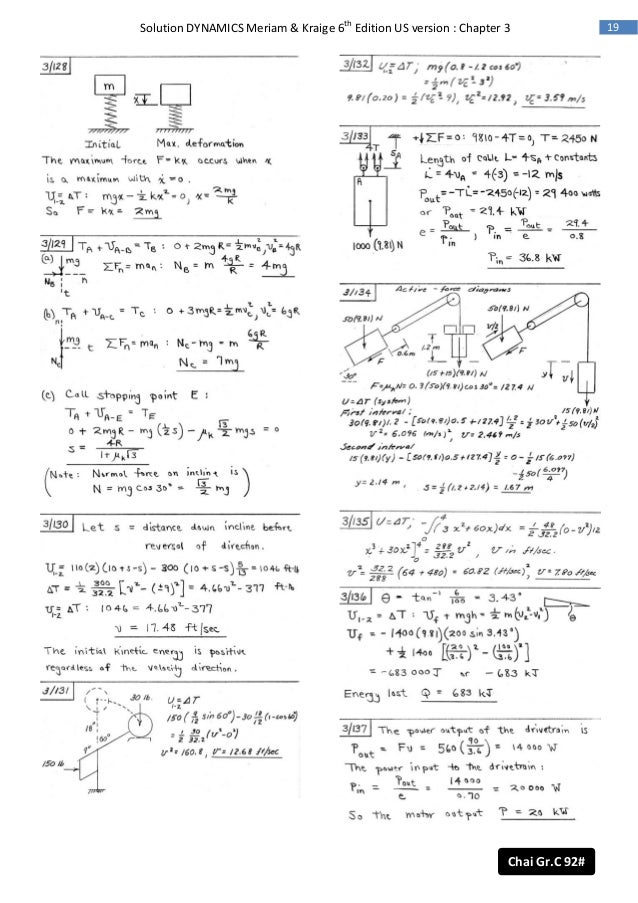 Solution DYNAMICS Meriam & Kraige 6th Edition US version : Chapter 3
19
3/128
m
x
Initial Max. deformation
The maximum force F = kx occurs when x
is a maximum with ẋ = 0.
U₁₋₂ = ΔT : mgx - ½kx² = 0, x = 2mg/k
So F = kx = 2mg
3/129 T_A + U_A-B = T_B : 0 + 2mgR = ½mv_B², v_B² = 4gR
(a) mg ΣF_n = ma_n : N_B = m 4gR/R = 4mg
N_B n
t
(b) T_A + U_A-C = T_C : 0 + 3mgR = ½mv_C², v_C² = 6gR
n
mg t ΣF_n = ma_n : N_C - mg = m 6gR/R
N_C N_C = 7mg
(c) Call stopping point E :
T_A + U_A-E = T_E
0 + 2mgR - mg(½s) - μ_k √3/2 mgs = 0
s = 4R/(1+μ_k√3)
(Note: Normal force on incline is
N = mg cos 30° = √3/2 mg)
3/130 Let s = distance down incline before
reversal of direction.
U₁₋₂ = 110(2)(10+s-s) - 300(10+s-s)5/13 = 1046 ft-lb
ΔT = ½ 300/32.2 [v² - (±9)²] = 4.66v² - 377 ft-lb
U₁₋₂ = ΔT : 1046 = 4.66v² - 377
v = 17.48 ft/sec
The initial kinetic energy is positive
regardless of the velocity direction.
3/131
30 lb
18"
60°
9"
150 lb
U₁₋₂ = ΔT
150(9/12 sin 60°) - 30 18/12 (1-cos 60°)
= ½ 30/32.2 (v²-0²)
v² = 160.8, v = 12.68 ft/sec
3/132 U₁₋₂ = ΔT; mg(0.8 - 1.2 cos 60°)
= ½m(v_C² - 3²)
9.81(0.20) = ½(v_C² - 9), v_C² = 12.92, v_C = 3.59 m/s
3/133
4T
S_A
A
1000 (9.81) N
+↓ΣF = 0: 9810 - 4T = 0, T = 2450 N
Length of cable L = 4s_A + constants
L̇ = 4v_A = 4(-3) = -12 m/s
P_out = -TL̇ = -2450(-12) = 29 400 watts
or P_out = 29.4 kW
e = P_out/P_in, P_in = P_out/e = 29.4/0.8
P_in = 36.8 kW
3/134 Active - force diagrams
50(9.81) N
50(9.81) N
v/2
1.2 m
0.6m
F
F
30°
y
v
(15+15)(9.81) N
15(9.81)N
F = μ_kN = 0.3(50)(9.81) cos 30° = 127.4 N
U = ΔT (system)
First interval:
30(9.81)1.2 - [50(9.81)0.5 + 127.4] 1.2/2 = ½30v² + ½50(v/2)²
v² = 6.096 (m/s)², v = 2.469 m/s
Second interval
15(9.81)(y) - [50(9.81)0.5 + 127.4] y/2 = 0 - ½15(6.097)
- ½50(6.097/4)
y = 2.14 m, s = ½(1.2+2.14) = 1.67 m
3/135 U = ΔT; -∫₀⁴(3x² + 60x)dx = ½ 48/32.2 (0-v²)12
x³ + 30x²]₀⁴ = 288/32.2 v², v in ft/sec.
v² = 32.2/288 (64 + 480) = 60.82 (ft/sec)², v = 7.80 ft/sec
3/136 θ = tan⁻¹ 6/100 = 3.43°
θ
U₁₋₂ = ΔT : U_f + mgh = ½m(v₂²-v₁²)
U_f = -1400(9.81)(200 sin 3.43°)
+ ½ 1400 [(20/3.6)² - (100/3.6)²]
= -683 000 J or -683 kJ
Energy lost Q = 683 kJ
3/137 The power output of the drivetrain is
P_out = Fv = 560(90/3.6) = 14 000 W
The power input to the drivetrain :
P_in = P_out/e = 14 000/0.70 = 20 000 W
So the motor output P = 20 kW
Chai Gr.C 92#